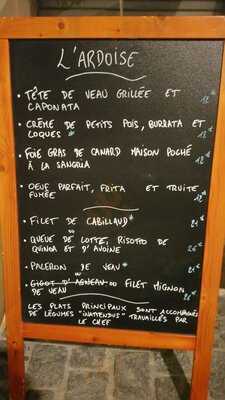 L'ARDOISE
• TÊTE DE VEAU GRILLÉE ET
CAPONATA 12€
• CRÈME DE PETITS POIS, BURRATA ET
COQUES * 12€
• FOIE GRAS DE CANARD MAISON POCHÉ
À LA SANGRIA 12€
• OEUF PARFAIT, FRITA ET TRUITE
FUMÉE 12€
• FILET DE CABILLAUD* 21€
ou
• QUEUE DE LOTTE, RISOTTO DE
QUINOA ET D'AVOINE
• PALERON DE VEAU* 21€
ou
• GIGOT D'AGNEAU ou FILET MIGNON
DE VEAU
LES PLATS PRINCIPAUX SONT ACCOMPAGNÉS
DE LÉGUMES "INATTENDUS" TRAVAILLÉS PAR
LE CHEF